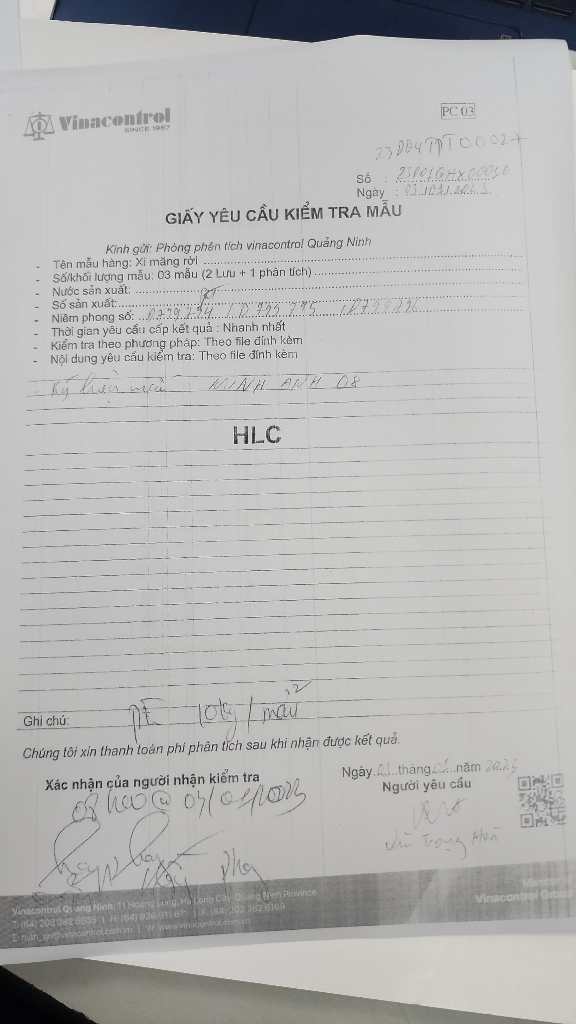 Vinacontrol
SINCE 1957
PC 03
Số :
Ngày :
GIẤY YÊU CẦU KIỂM TRA MẪU
Kính gửi: Phòng phân tích vinacontrol Quảng Ninh
- Tên mẫu hàng: Xi măng rời
- Số/khối lượng mẫu: 03 mẫu (2 Lưu + 1 phân tích)
- Nước sản xuất:
- Số sản xuất:
- Niêm phong số: D739794 / D 799 795 / D799796
- Thời gian yêu cầu cấp kết quả : Nhanh nhất
- Kiểm tra theo phương pháp: Theo file đính kèm
- Nội dung yêu cầu kiểm tra: Theo file đính kèm
- Ký hiệu mẫu : MINH ANH 08
HLC
Ghi chú: 10kg / mẫu
Chúng tôi xin thanh toán phí phân tích sau khi nhận được kết quả.
Xác nhận của người nhận kiểm tra
Ngày 03 tháng 01 năm 2023
Người yêu cầu
08h00 @ 03/01/2023
Vũ Trọng Hoà
Vinacontrol Quảng Ninh, 11 Hoàng Long, Hạ Long City, Quảng Ninh Province
W: www.vinacontrol.com.vn
Vinacontrol Group